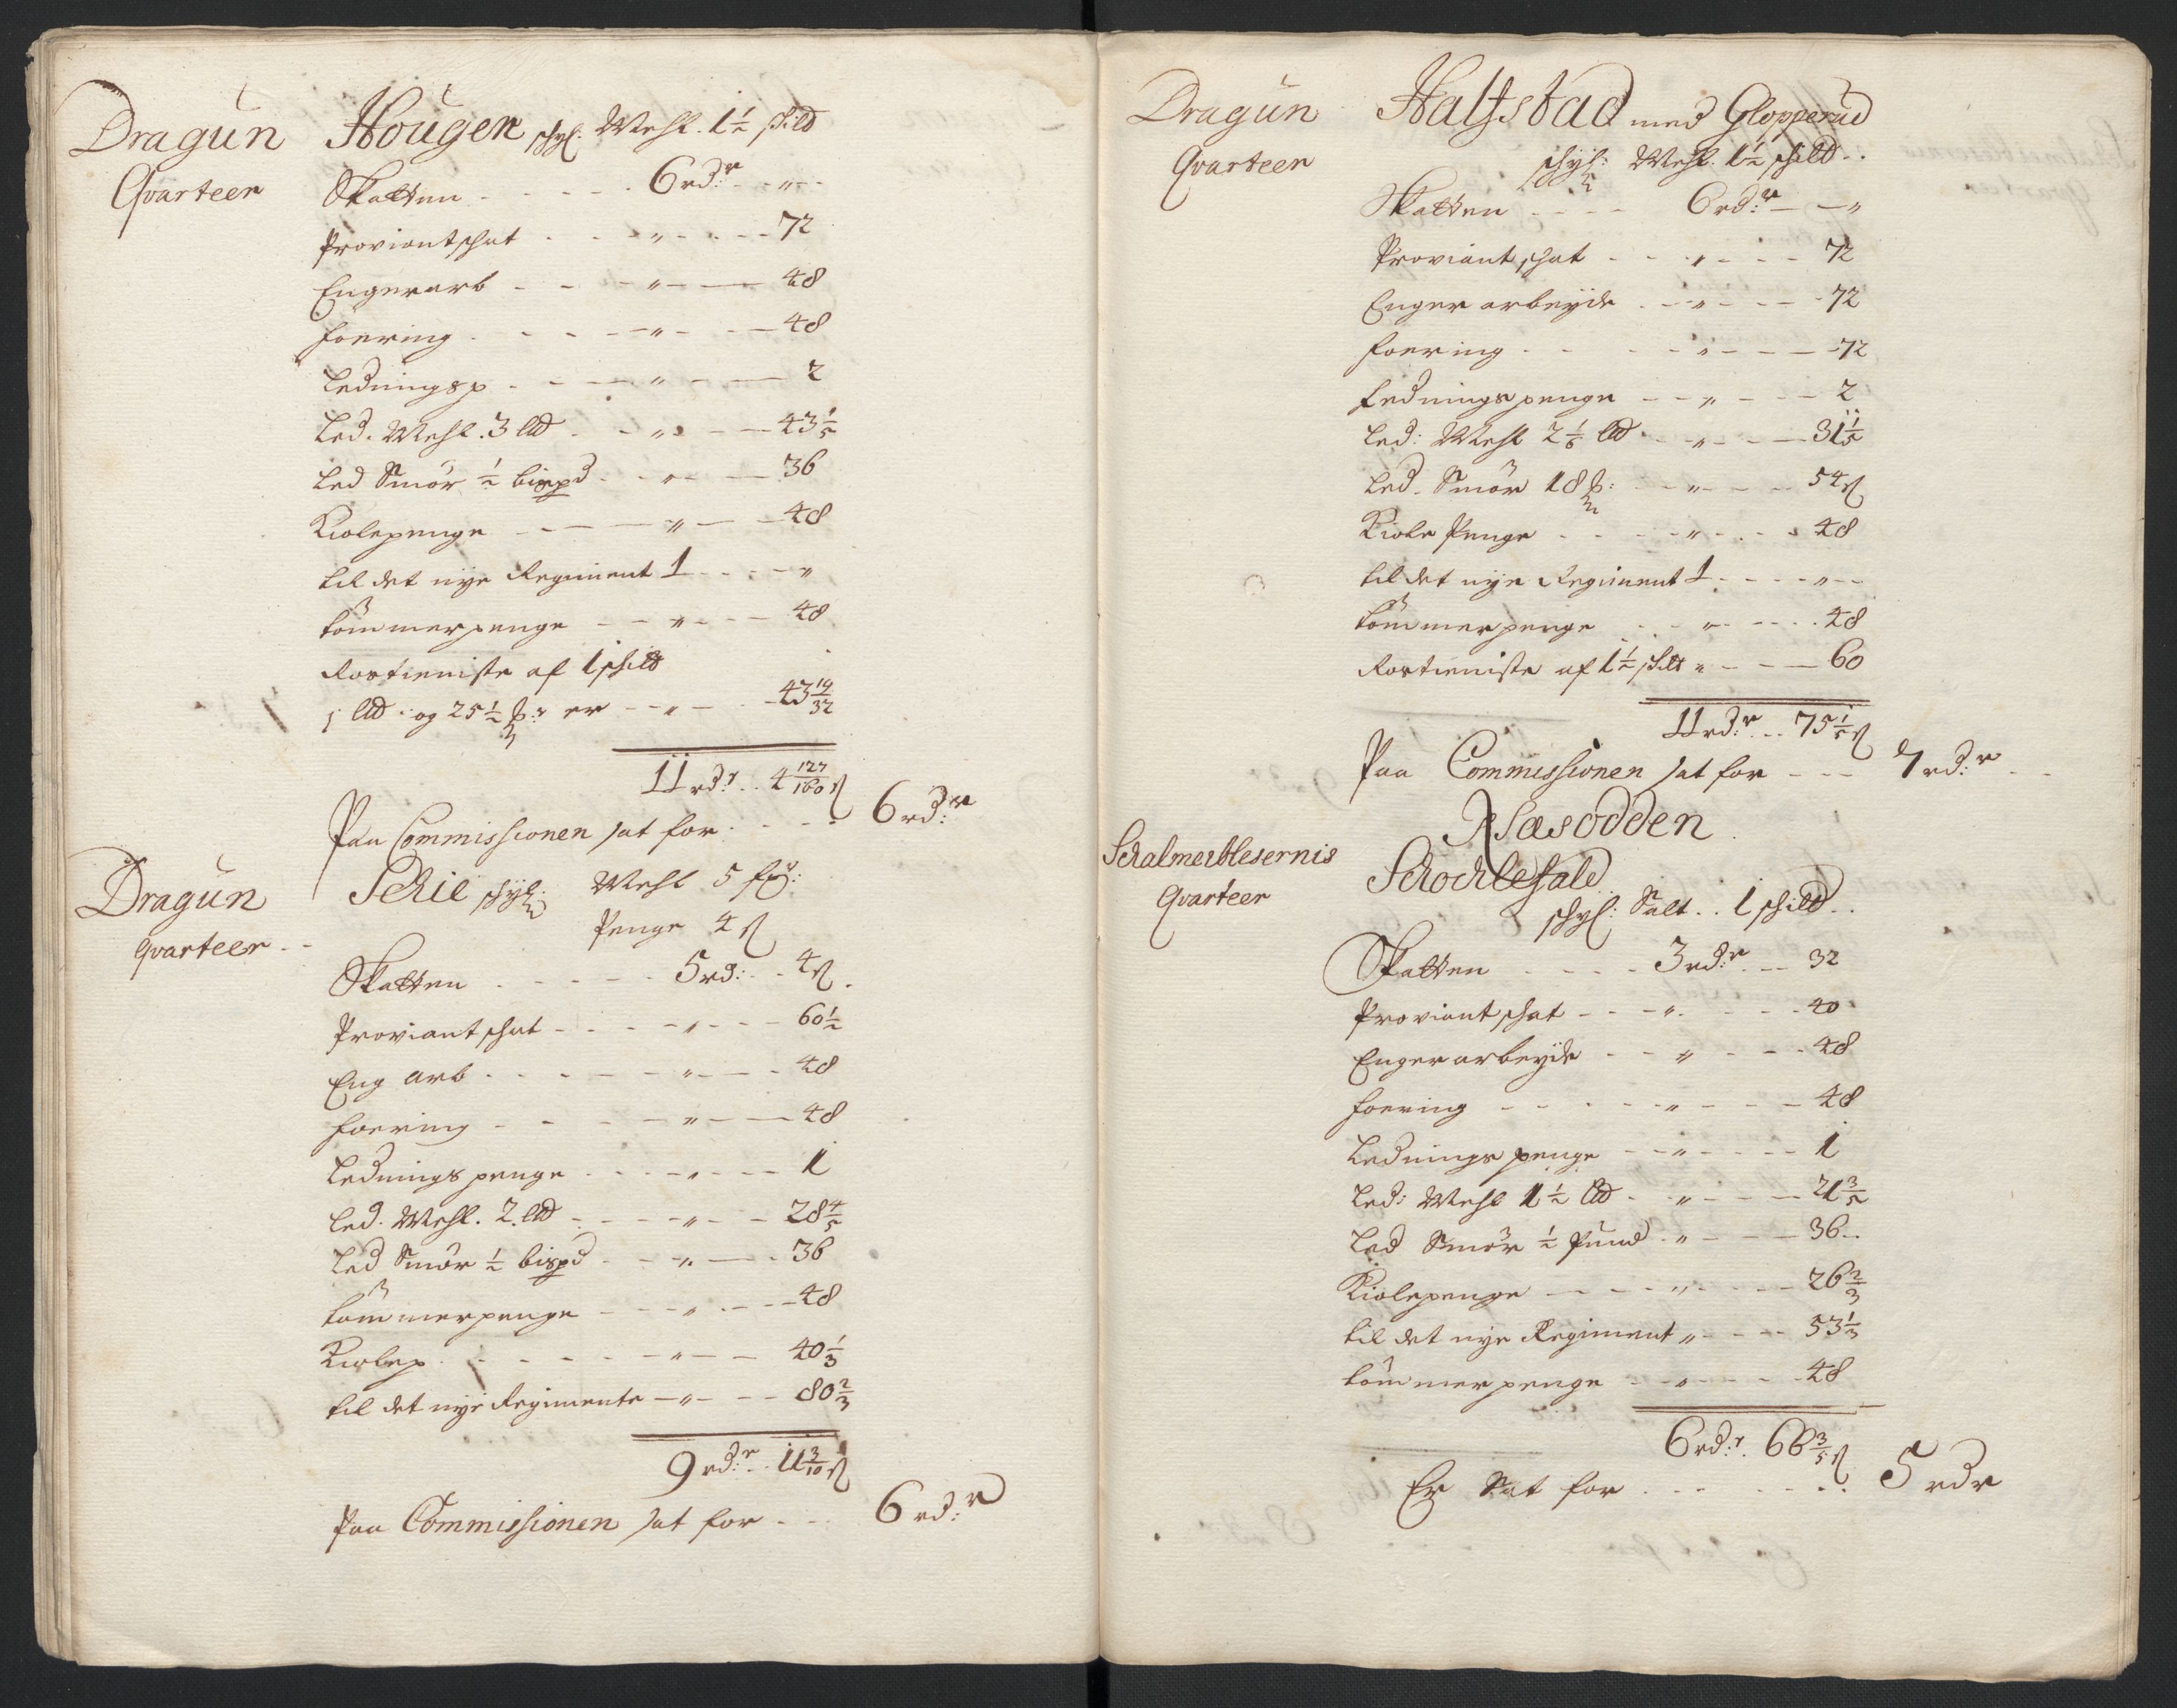 Dragun
Qvarteer
Hougen schyl. Mehl. 1½ skild
Skatten - - - 6 rd:r - - " -
Proviantschat - - - " - - - 72
Engerarb - - - " - - 48
foering - - - " - - 48
Ledningsp - - - " - - 2
Led. Mehl. 3 lld - - " - - 43 1/5
Led Smör ½ bispd - - " - - 36
Kiolepenge - - - " - - 48
til det nye Regiment 1 - - - "
tömmerpenge - - - " - - 48
Rostieniste af 1 schild
j lld og 25½ er - - " - - 43 19/32
11 rd:r - - 4 127/160 ß
Paa Commissionen sat for - - - 6 rd:r
Dragun
qvarteer - -
Schie schyl: Mehl 5
Penge 4 ß
Skatten - - - 5 rd: - - 4 ß.
Proviantschat - - - " - - 60½
Eng arb - - - " - - 48
foering - - - " - - 48
Lednings penge - - - " - - 1
Led. Mehl. 2. lld - - - " - - 28 4/5
Led Smör ½ bispd - - " - - 36
tömmerpenge - - - " - - 48
Kiolep. - - - " - - 40 1/3
til det nye Regimente - " - - 80 2/3
9 rd:r - - 11 3/10 ß
Paa Commissionen sat for - - - 6 rd:r
Dragun
Qvarteer
Halfstad med Glopperud
schyl: Mehl. 1½ schild - -
Skatten - - - 6 rd:r - - "
Proviantschat - - - " - - - 72
Enger arbeyde - - " - - 72
foering - - - " - - 72
Ledningspenge - - " - - 2
Led: Mehl 2 1/6 lld - - " - - 31 1/5
Led. Smör 18 - - " - - 54 ß
Kiole Penge - - - " - - 48
til det nye Regiment 1 - - - " - -
tömmerpenge - - " - - - 48
Rostieniste af 1½ skild " - - 60
11 rd:r - - 75 1/5 ß
Paa Commissionen sat for - - - 7 rd:r - -
Næsodden
Schalmeiblesernis
Qvarteer
Schochlefald
schyl: Salt . . 1 schild . .
Skatten - - - 3 rd:r - - 32
Proviantschat - - - " - - - 40
Engerarbeyde - - " - - 48
foering - - - " - - 48
Lednings penge - - " - - - 1
Led: Mehl 1½ lld - - " - - 21 3/5
Led Smör ½ Pund - " - - 36 - -
Kiolepenge - - - " - - 26 2/3
til det nye Regiment " - - - 53 1/3
tömmerpenge - - " - - - 48
6 rd:r. 66 3/5 ß
Er Sat for - - - - 5 rdr